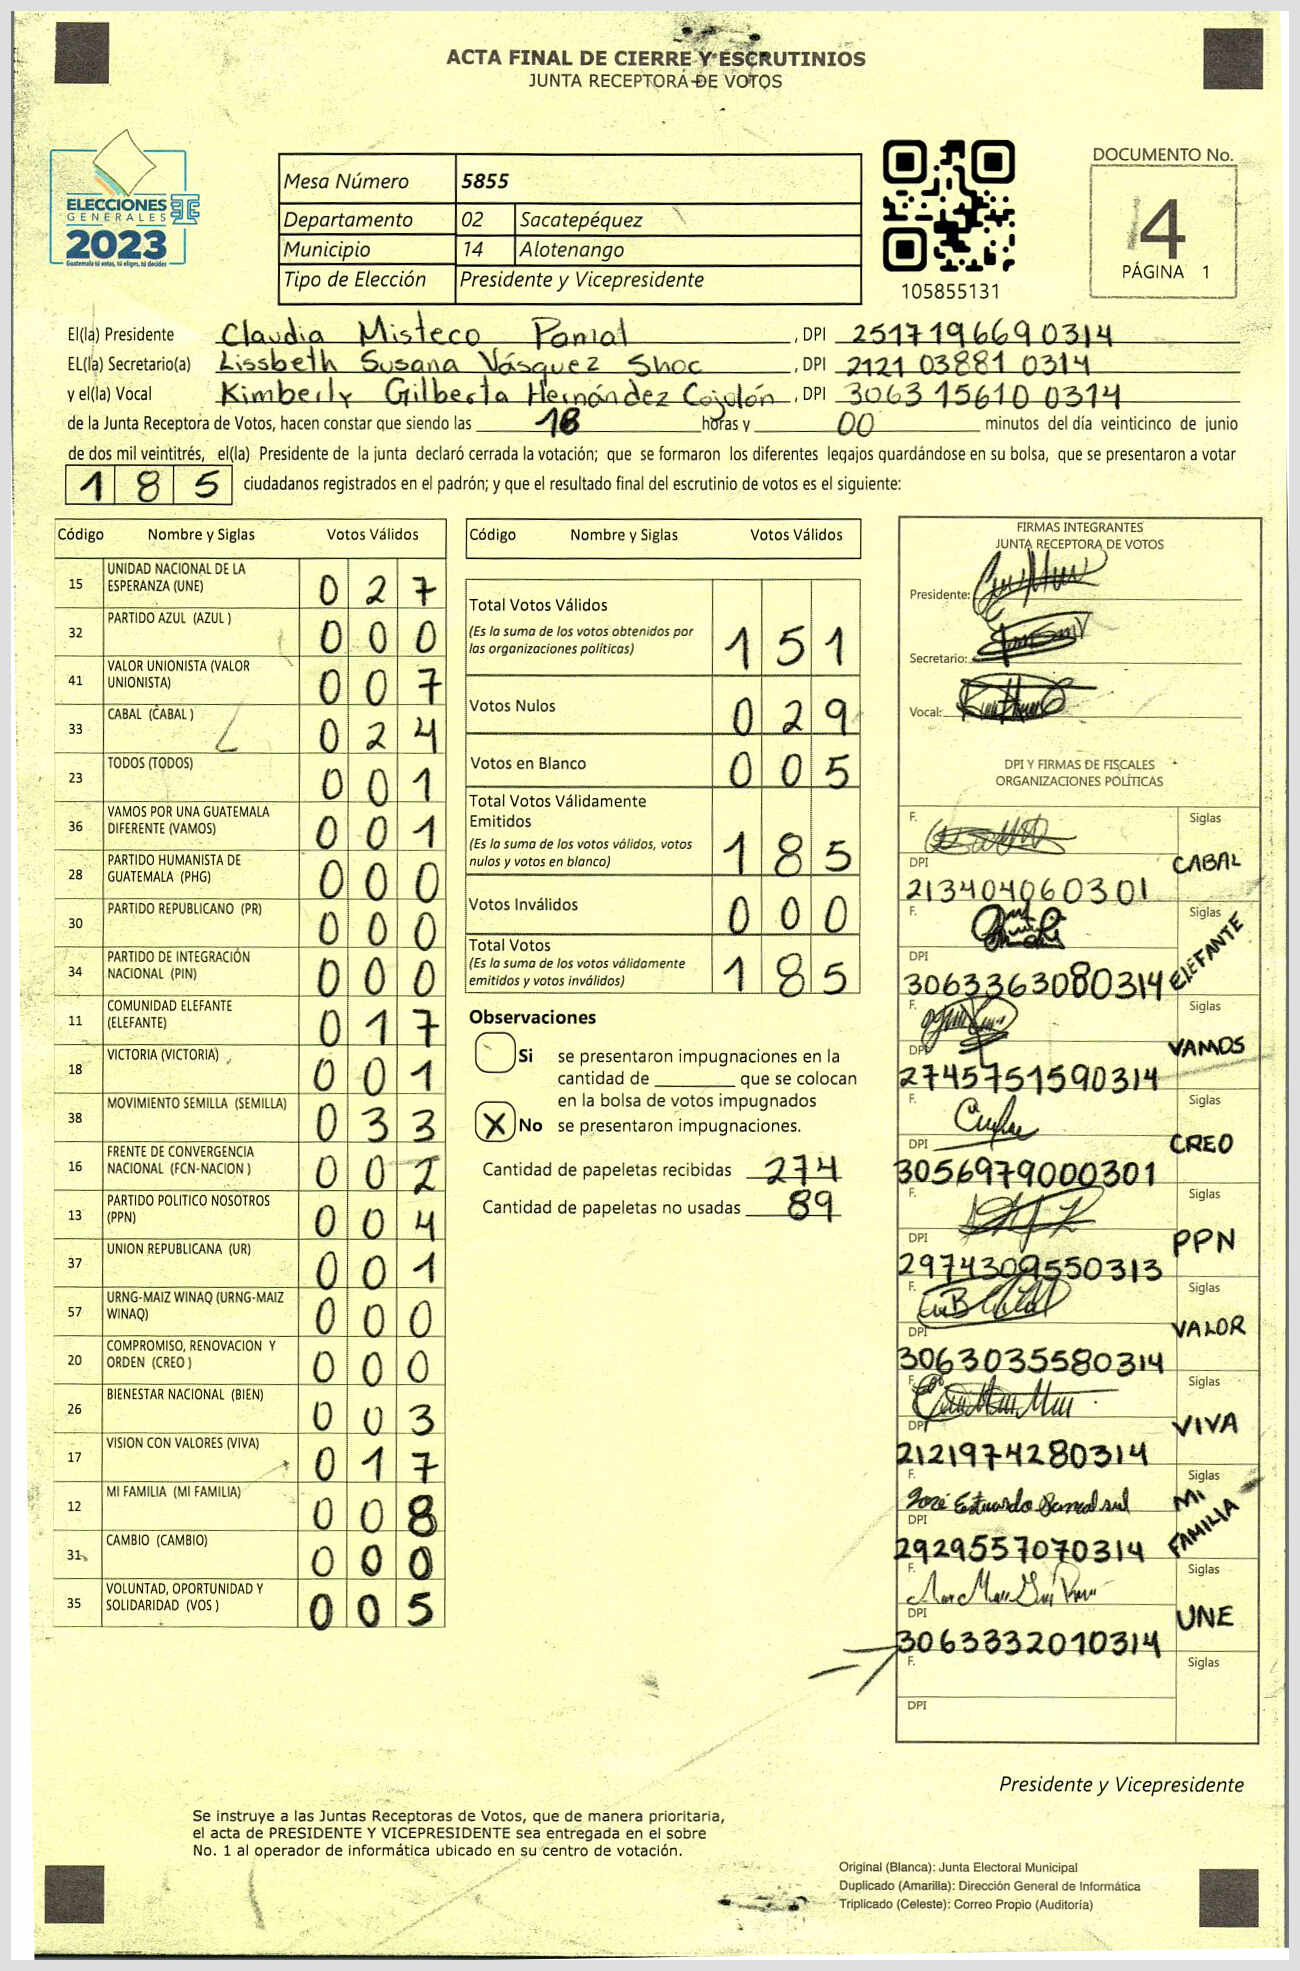 ACTA FINAL DE CIERRE Y ESCRUTINIOS
JUNTA RECEPTORA DE VOTOS
ELECCIONES
GENERALES
2023
Guatemala tú votas, tú eliges, tú decides
Mesa Número 5855
Departamento 02 Sacatepéquez
Municipio 14 Alotenango
Tipo de Elección Presidente y Vicepresidente
105855131
DOCUMENTO No.
4
PÁGINA 1
El(la) Presidente Claudia Misteco Pamal , DPI 2517196690314
EL(la) Secretario(a) Lissbeth Susana Vásquez Shoc , DPI 2121 03881 0314
y el(la) Vocal Kimberly Gilberta Hernández Cojolón , DPI 3063 15610 0314
de la Junta Receptora de Votos, hacen constar que siendo las 18 horas y 00 minutos del día veinticinco de junio
de dos mil veintitrés, el(la) Presidente de la junta declaró cerrada la votación; que se formaron los diferentes legajos guardándose en su bolsa, que se presentaron a votar
185 ciudadanos registrados en el padrón; y que el resultado final del escrutinio de votos es el siguiente:
Código Nombre y Siglas Votos Válidos
15 UNIDAD NACIONAL DE LA ESPERANZA (UNE) 0 2 7
32 PARTIDO AZUL (AZUL ) 0 0 0
41 VALOR UNIONISTA (VALOR UNIONISTA) 0 0 7
33 CABAL (CABAL ) 0 2 4
23 TODOS (TODOS) 0 0 1
36 VAMOS POR UNA GUATEMALA DIFERENTE (VAMOS) 0 0 1
28 PARTIDO HUMANISTA DE GUATEMALA (PHG) 0 0 0
30 PARTIDO REPUBLICANO (PR) 0 0 0
34 PARTIDO DE INTEGRACIÓN NACIONAL (PIN) 0 0 0
11 COMUNIDAD ELEFANTE (ELEFANTE) 0 1 7
18 VICTORIA (VICTORIA) 0 0 1
38 MOVIMIENTO SEMILLA (SEMILLA) 0 3 3
16 FRENTE DE CONVERGENCIA NACIONAL (FCN-NACION ) 0 0 2
13 PARTIDO POLITICO NOSOTROS (PPN) 0 0 4
37 UNION REPUBLICANA (UR) 0 0 1
57 URNG-MAIZ WINAQ (URNG-MAIZ WINAQ) 0 0 0
20 COMPROMISO, RENOVACION Y ORDEN (CREO ) 0 0 0
26 BIENESTAR NACIONAL (BIEN) 0 0 3
17 VISION CON VALORES (VIVA) 0 1 7
12 MI FAMILIA (MI FAMILIA) 0 0 8
31 CAMBIO (CAMBIO) 0 0 0
35 VOLUNTAD, OPORTUNIDAD Y SOLIDARIDAD (VOS ) 0 0 5
Código Nombre y Siglas Votos Válidos
Total Votos Válidos 1 5 1
(Es la suma de los votos obtenidos por
las organizaciones políticas)
Votos Nulos 0 2 9
Votos en Blanco 0 0 5
Total Votos Válidamente
Emitidos
(Es la suma de los votos válidos, votos
nulos y votos en blanco) 1 8 5
Votos Inválidos 0 0 0
Total Votos
(Es la suma de los votos válidamente
emitidos y votos inválidos) 1 8 5
Observaciones
Si se presentaron impugnaciones en la
cantidad de ________ que se colocan
en la bolsa de votos impugnados
X No se presentaron impugnaciones.
Cantidad de papeletas recibidas 274
Cantidad de papeletas no usadas 89
FIRMAS INTEGRANTES
JUNTA RECEPTORA DE VOTOS
Presidente:
Secretario:
Vocal:
DPI Y FIRMAS DE FISCALES
ORGANIZACIONES POLÍTICAS
F. Siglas
DPI CABAL
213404060301
F. Siglas
DPI ELEFANTE
3063363080314
F. Siglas
DPI VAMOS
2745751590314
F. Siglas
DPI CREO
3056979000301
F. Siglas
DPI PPN
2974309550313
F. Siglas
DPI VALOR
3063035580314
F. Siglas
DPI VIVA
2121974280314
F. José Estuardo Siglas
DPI MI FAMILIA
2929557070314
F. Siglas
DPI UNE
3063332010314
F. Siglas
DPI
Presidente y Vicepresidente
Se instruye a las Juntas Receptoras de Votos, que de manera prioritaria,
el acta de PRESIDENTE Y VICEPRESIDENTE sea entregada en el sobre
No. 1 al operador de informática ubicado en su centro de votación.
Original (Blanca): Junta Electoral Municipal
Duplicado (Amarilla): Dirección General de Informática
Triplicado (Celeste): Correo Propio (Auditoría)